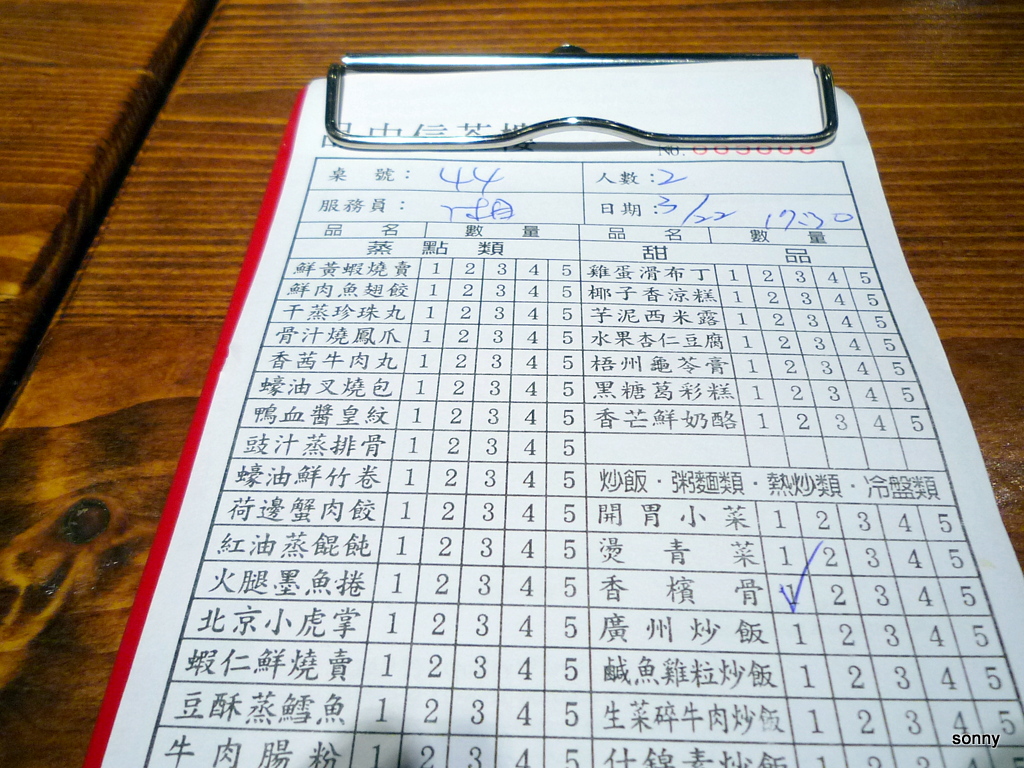 桌號： 44 人數：2
服務員： 日期：3/22 17:30
品名 數量 品名 數量
蒸點類 甜品
鮮黃蝦燒賣 1 2 3 4 5 雞蛋滑布丁 1 2 3 4 5
鮮肉魚翅餃 1 2 3 4 5 椰子香涼糕 1 2 3 4 5
干蒸珍珠丸 1 2 3 4 5 芋泥西米露 1 2 3 4 5
骨汁燒鳳爪 1 2 3 4 5 水果杏仁豆腐 1 2 3 4 5
香茜牛肉丸 1 2 3 4 5 梧州龜苓膏 1 2 3 4 5
蠔油叉燒包 1 2 3 4 5 黑糖葛彩糕 1 2 3 4 5
鴨血醬皇紋 1 2 3 4 5 香芒鮮奶酪 1 2 3 4 5
豉汁蒸排骨 1 2 3 4 5
蠔油鮮竹卷 1 2 3 4 5 炒飯．粥麵類．熱炒類．冷盤類
荷邊蟹肉餃 1 2 3 4 5 開胃小菜 1 2 3 4 5
紅油蒸餛飩 1 2 3 4 5 燙青菜 1 2 3 4 5
火腿墨魚捲 1 2 3 4 5 香檳骨 1 2 3 4 5
北京小虎掌 1 2 3 4 5 廣州炒飯 1 2 3 4 5
蝦仁鮮燒賣 1 2 3 4 5 鹹魚雞粒炒飯 1 2 3 4 5
豆酥蒸鱈魚 1 2 3 4 5 生菜碎牛肉炒飯 1 2 3 4 5
牛肉腸粉 1 2 3 4 5 什錦素炒飯
sonny